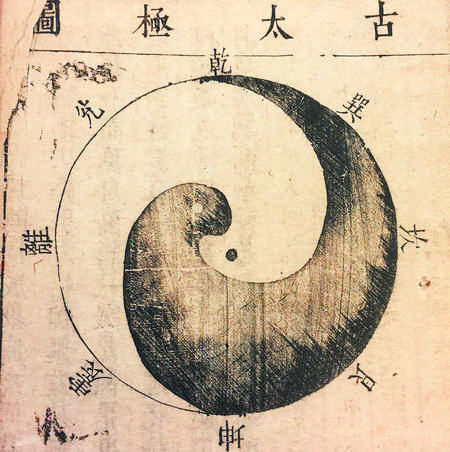 古太極圖
乾
巽
坎
艮
坤
震
離
兊